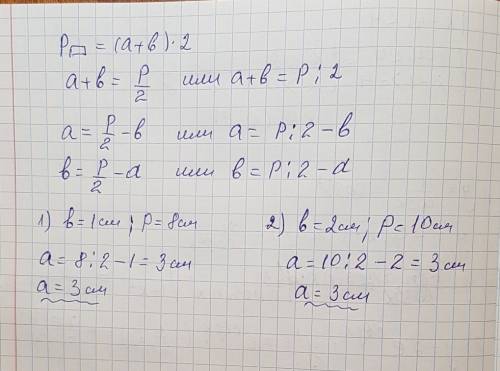 P▭ = (a+b)·2
a+b = P/2 или a+b = P:2
a = P/2 - b или a = P:2 - b
b = P/2 - a или b = P:2 - a
1) b = 1см; P = 8см
a = 8:2 - 1 = 3см
a = 3см
2) b = 2см; P = 10см
a = 10:2 - 2 = 3см
a = 3см